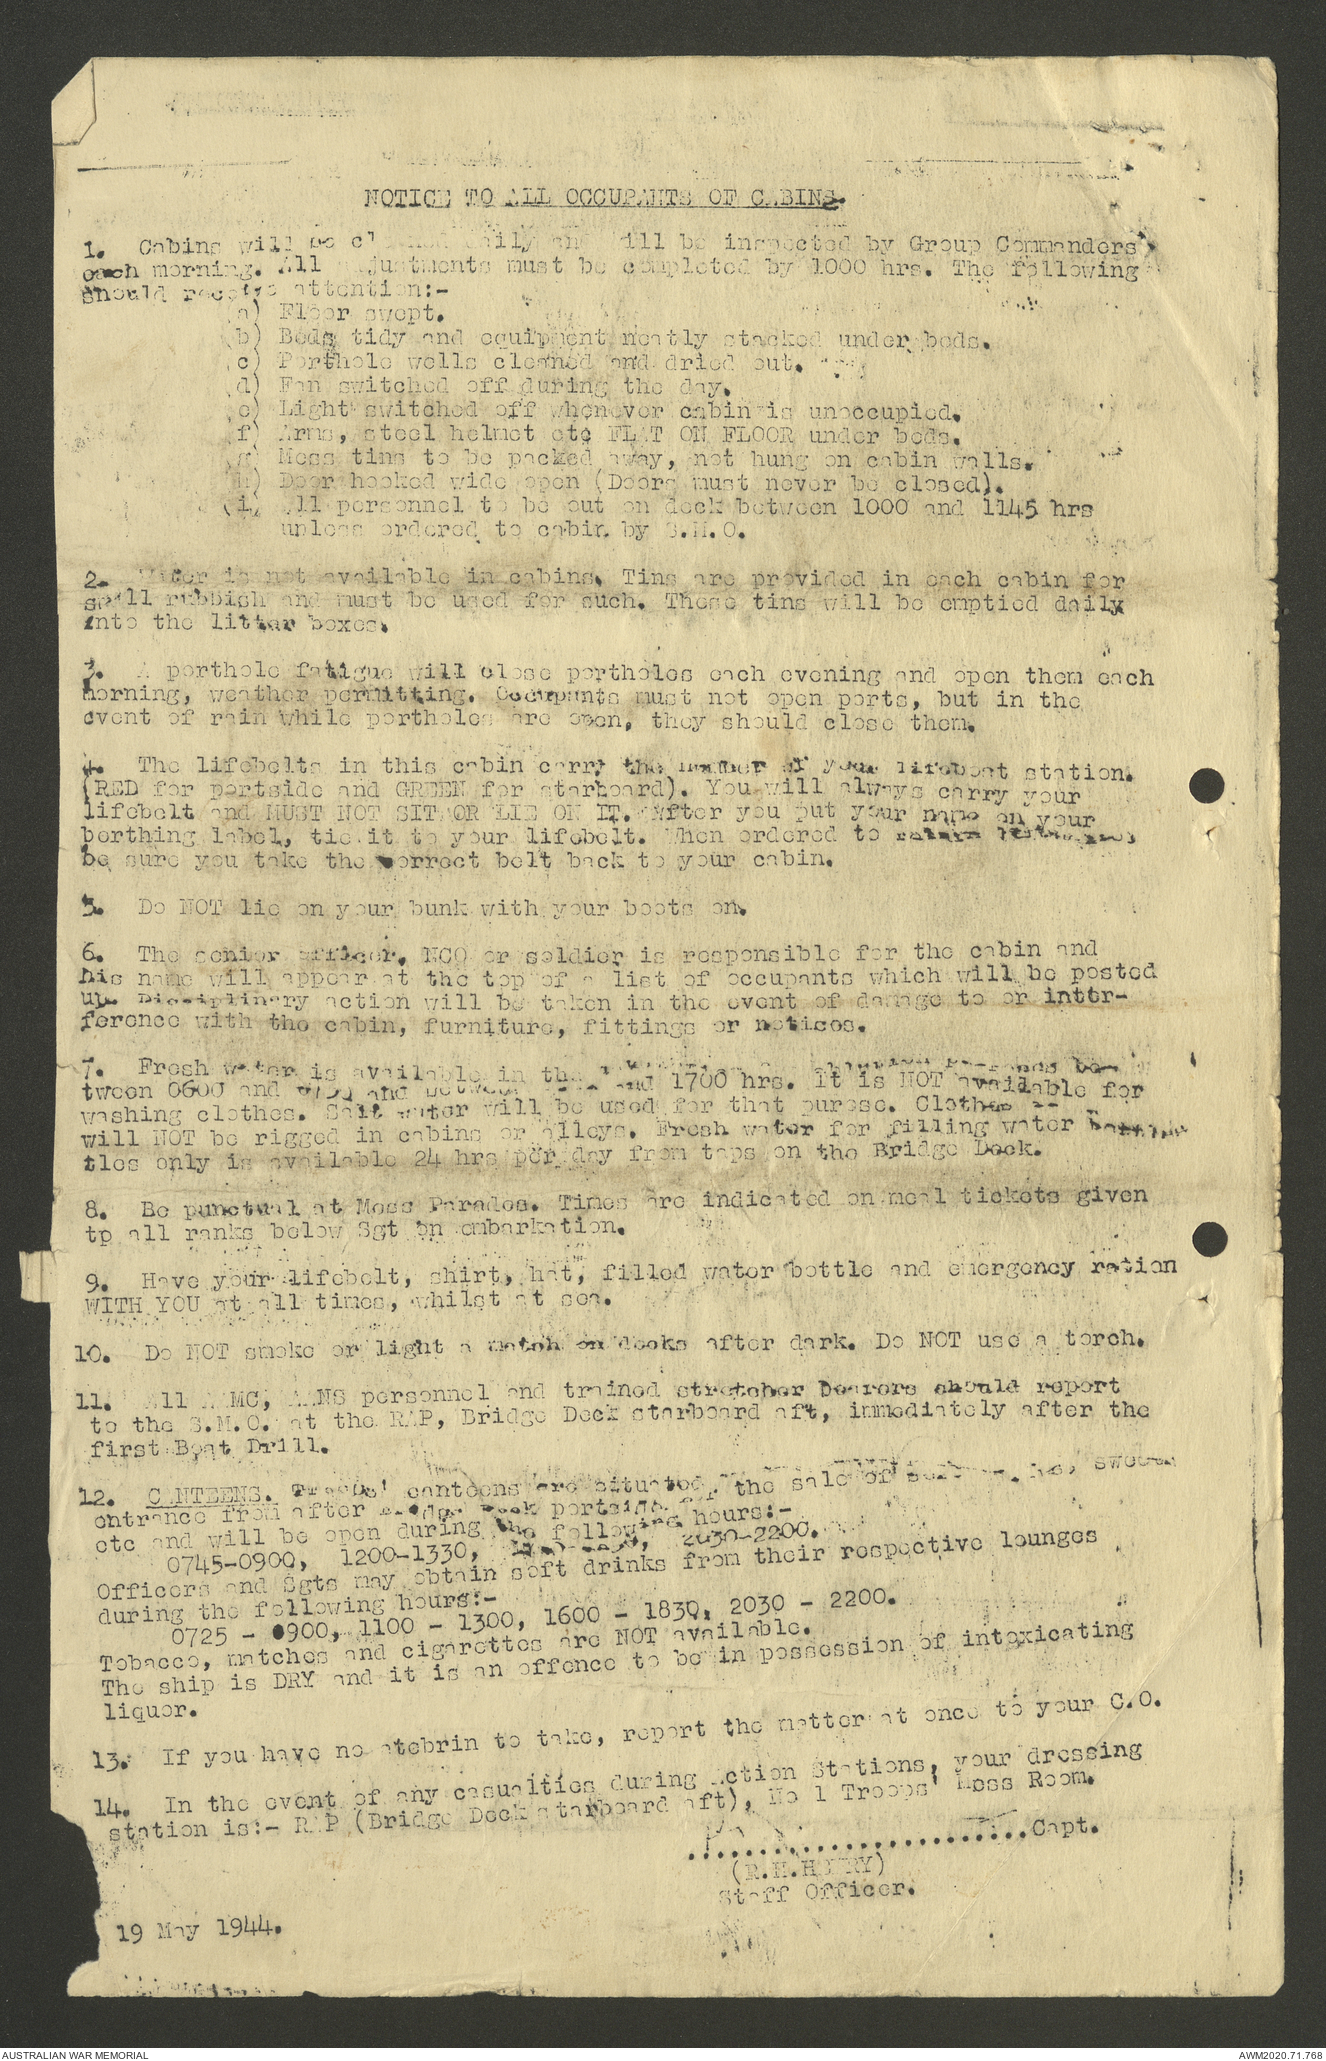 NOTICE TO ALL OCCUPANTS OF CABINS.
1. Cabins will be cleaned daily and will be inspected by Group Commanders
each morning. All adjustments must be completed by 1000 hrs. The following
should receive attention:-
(a) Floor swept.
(b) Beds tidy and equipment neatly stacked under beds.
(c) Porthole wells cleaned and dried out.
(d) Fan switched off during the day.
(e) Light switched off whenever cabin is unoccupied.
(f) Arms, steel helmet etc FLAT ON FLOOR under beds.
(g) Mess tins to be packed away, not hung on cabin walls.
(h) Door hooked wide open (Doors must never be closed).
(i) All personnel to be out on deck between 1000 and 1145 hrs
unless ordered to cabin by S.M.O.
2. Water is not available in cabins. Tins are provided in each cabin for
small rubbish and must be used for such. These tins will be emptied daily
into the litter boxes.
3. A porthole fatigue will close portholes each evening and open them each
morning, weather permitting. Occupants must not open ports, but in the
event of rain while portholes are open, they should close them.
4. The lifebelts in this cabin carry the number of your lifeboat station.
(RED for portside and GREEN for starboard). You will always carry your
lifebelt and MUST NOT SIT OR LIE ON IT. After you put your name on your
berthing label, tie it to your lifebelt. When ordered to return
be sure you take the correct belt back to your cabin.
5. Do NOT lie on your bunk with your boots on.
6. The senior officer, NCO or soldier is responsible for the cabin and
his name will appear at the top of a list of occupants which will be posted
up. Disciplinary action will be taken in the event of damage to or inter-
ference with the cabin, furniture, fittings or notices.
7. Fresh water is available in the be-
tween 0600 and and between and 1700 hrs. It is NOT available for
washing clothes. Salt water will be used for that purose. Clothes
will NOT be rigged in cabins or alleys. Fresh water for filling water
tles only is available 24 hrs per day from taps on the Bridge Deck.
8. Be punctual at Mess Parades. Times are indicated on meal tickets given
tp all ranks below Sgt on embarkation.
9. Have your lifebelt, shirt, hat, filled water bottle and emergency ration
WITH YOU at all times, whilst at sea.
10. Do NOT smoke or light a match on decks after dark. Do NOT use a torch.
11. All AAMC, AANS personnel and trained stretcher bearers should report
to the S.M.O. at the RAP, Bridge Deck starboard aft, immediately after the
first Boat Drill.
12. CANTEENS. Troops' canteens are situated
entrance from after Bridge Deck portside for the sale of soft sweets
etc and will be open during the following hours:-
0745-0900, 1200-1330, 2030-2200.
Officers and Sgts may obtain soft drinks from their respective lounges
during the following hours:-
0725 - 0900, 1100 - 1300, 1600 - 1830, 2030 - 2200.
Tobacco, matches and cigarettes are NOT available.
The ship is DRY and it is an offence to be in possession of intoxicating
liquor.
13. If you have no atebrin to take, report the matter at once to your C.O.
14. In the event of any casualties during Action Stations, your dressing
station is:- RAP (Bridge Deck starboard aft), No 1 Troops' Mess Room.
..........................Capt.
(R.H.HENRY)
Staff Officer.
19 May 1944.
AUSTRALIAN WAR MEMORIAL
AWM2020.71.768